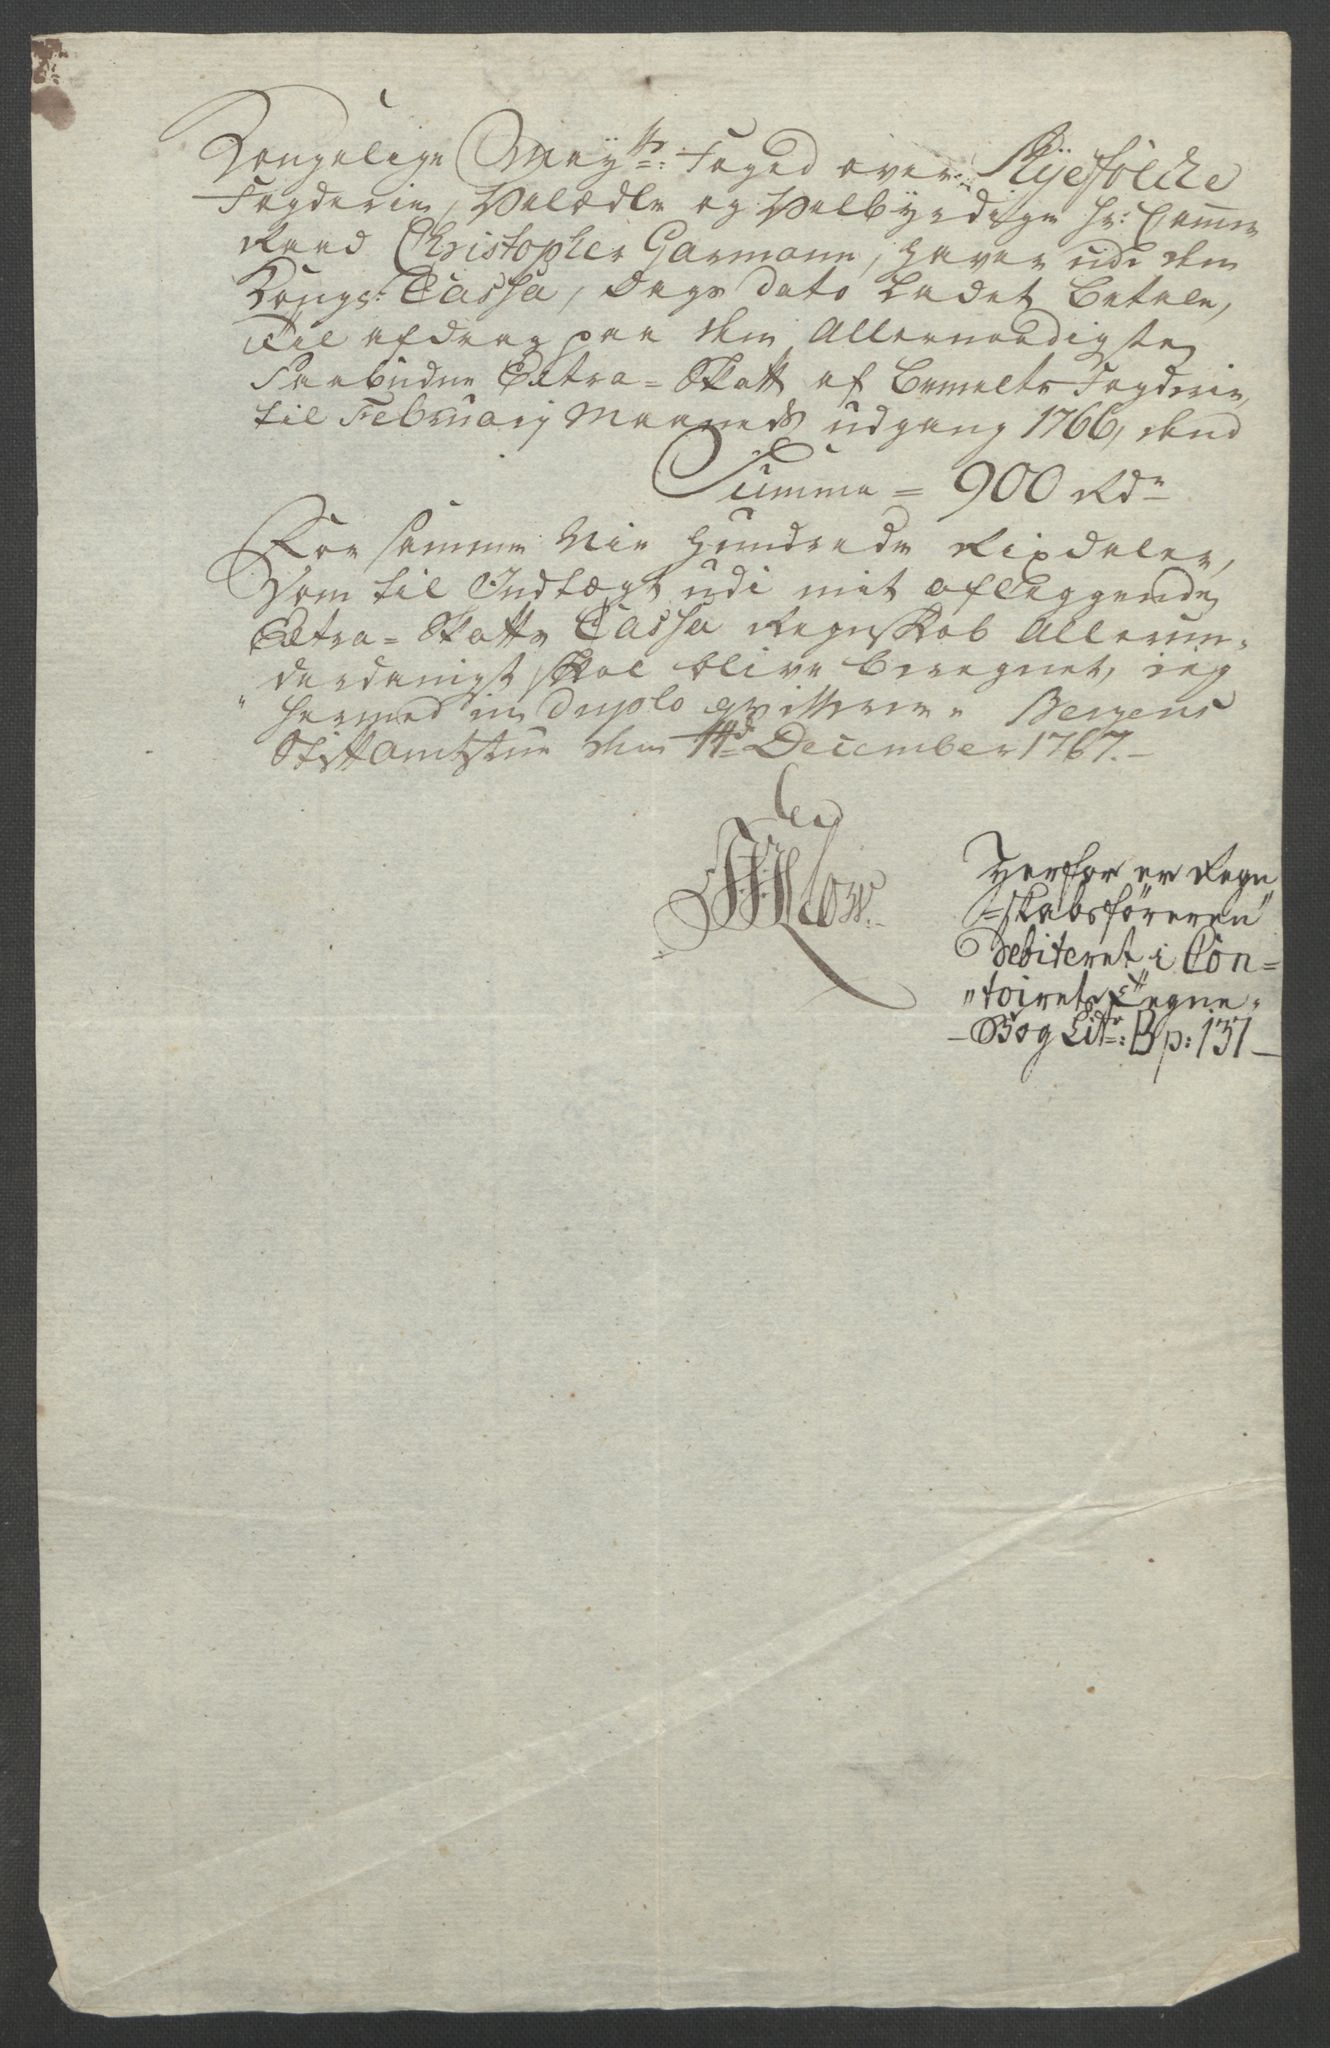 Kongelige Mayts: Foged over Ryefölcke
Fogderie, Velædle og Velbyrdige Hr: Cammer
Raad Christopher Garmann, haver udi den
Kongs: Cassa, Dags dato Ladet Betale,
Til afdrag paa den Allernaadigste
Paabudne Extra=Skatt af bemelte Fogderie,
til February Maaneds udgang 1766, dend
Summa = 900 Rdr
For samme Nie Hundrede Rixdaler,
Som til Indtægt udi mit aflæggende
Extra=Skatts Cassa Regnskab Allerun-
derdanigst skal blive beregnet, ieg
hermed in duplo qvitterer. Bergens
Stiftamtstue den 14d December 1767.
Herfor er Regn
=skabsføreren
Debiteret i Con=
toirets Tegne-
-Bog Litr: B p: 131